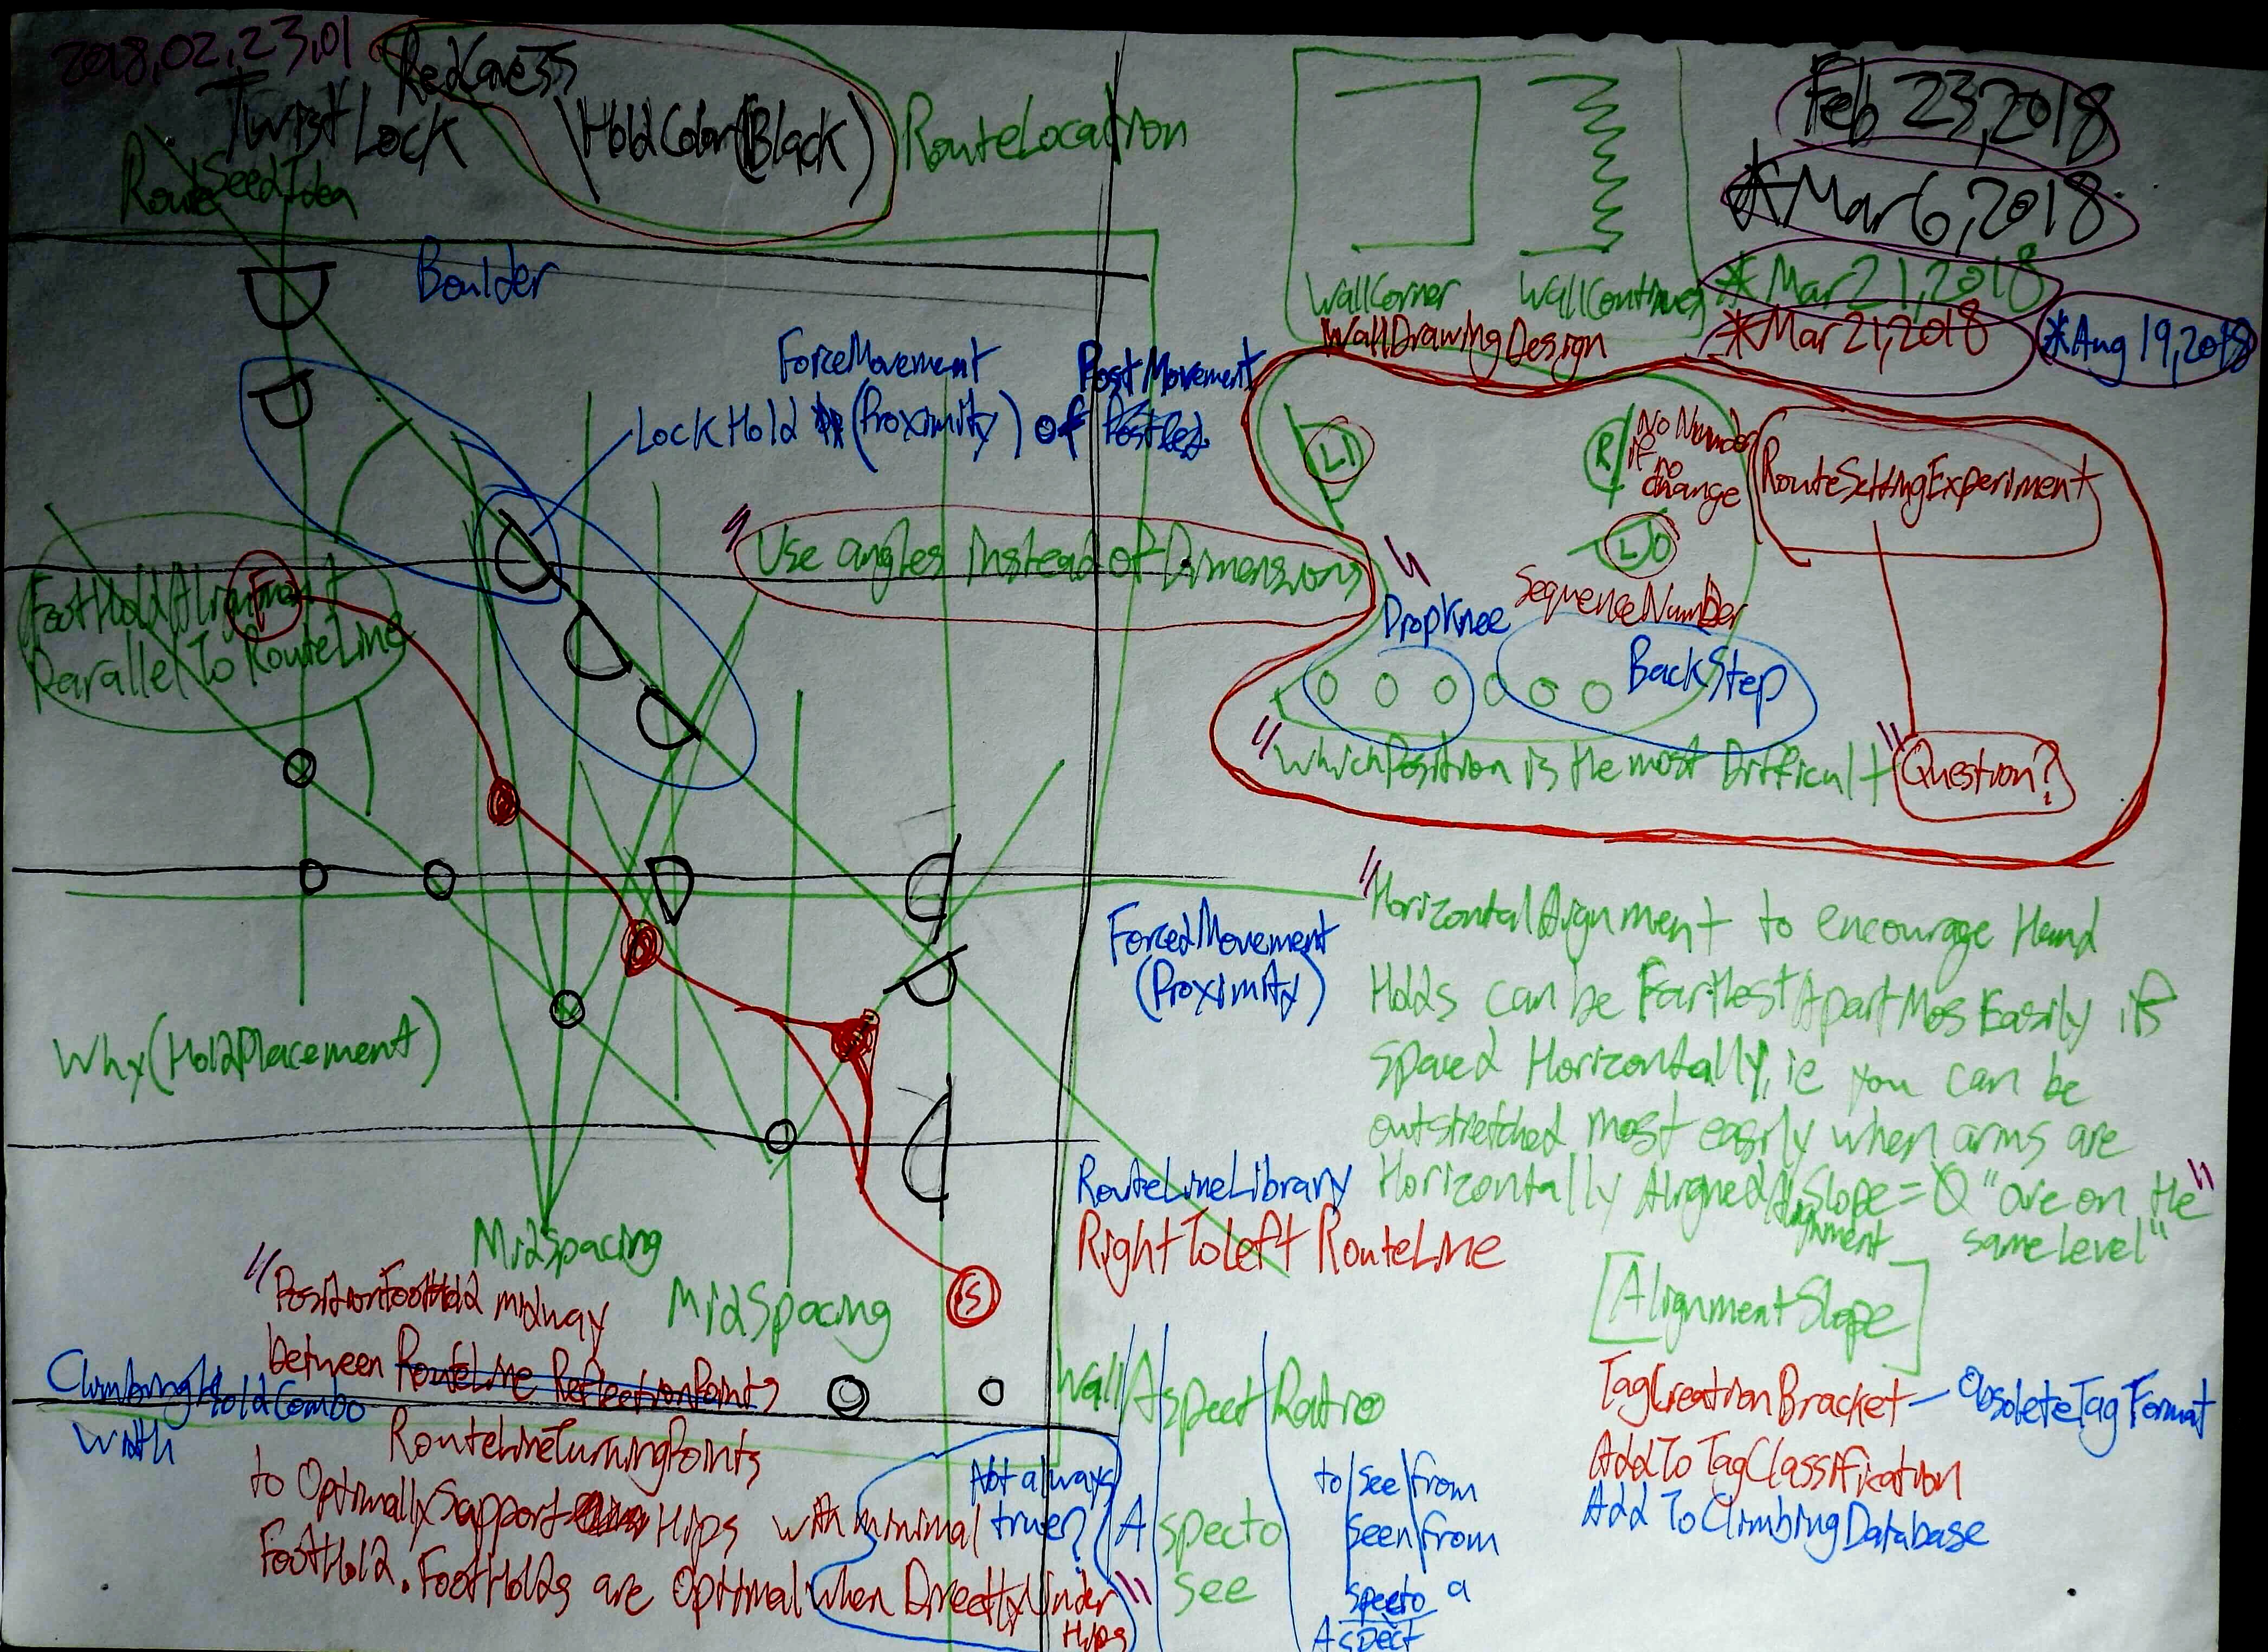 2018,02,23,01
TwistLock
RedCave35
\HoldColor(Black)
RouteLocation
RouteSeedIdea
Feb 23,2018
*Mar6,2018
*Mar21,2018
*Mar21,2018
*Aug 19,2018
WallCorner
WallContinues
WallDrawingDesign
Boulder
ForceMovement
PostMovement
LockHold (Proximity) of
L1
R
No Number
if no
change
L10
SequenceNumber
RouteSettingExperiment
"Use angles instead of Dimensions"
FootHoldAlignment
Front
Parallel To RouteLine
DropKnee
BackStep
"WhichPosition is the most Difficult"
Question?
Why(HoldPlacement)
ForcedMovement
(Proximity)
"HorizontalAlignment to encourage Hand
Holds can be FarthestApartMosEasily if
spaced Horizontally, ie you can be
outstretched most easily when arms are
Horizontally Aligned
Alignment
Slope=0 "are on the
same level"
"
[AlignmentSlope]
RouteLineLibrary
RightToLeft RouteLine
MidSpacing
MidSpacing
S
"PositionFootHold midway
between RouteLine ReflectionPoints
RouteLineTurningPoints
to OptimallySupport Hips with minimal
FootHold. FootHolds are Optimal when DirectlyUnder
Hips
"
ClimbingHoldCombo
with
Not always
true?
Wall Aspect Ratio
A specto
see
to see from
seen from
specto a
Aspect
TagCreationBracket - ObsoleteTagFormat
AddToTagClassification
Add ToClimbingDatabase